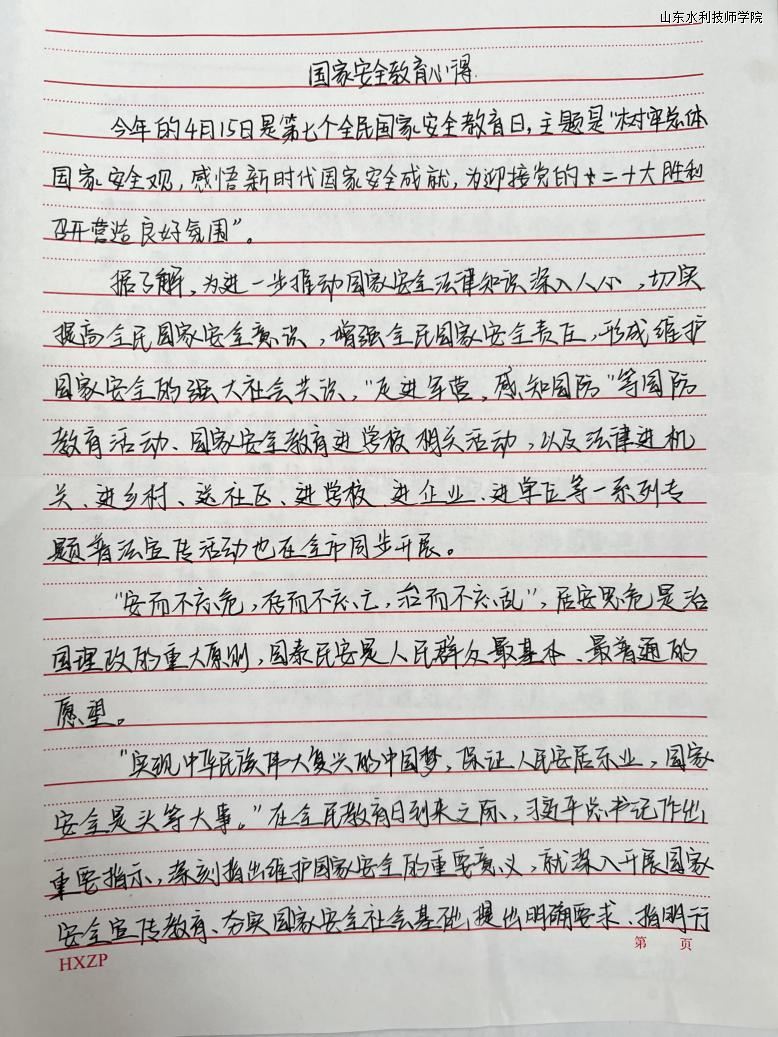 山东水利技师学院
国家安全教育心得
今年的4月15日是第七个全民国家安全教育日,主题是“树牢总体
国家安全观,感悟新时代国家安全成就,为迎接党的二十大胜利
召开营造良好氛围”。
据了解,为进一步推动国家安全法律知识深入人心,切实
提高全民国家安全意识,增强全民国家安全责任,形成维护
国家安全的强大社会共识,“走进军营,感知国防”等国防
教育活动、国家安全教育进学校相关活动,以及法律进机
关、进乡村、送社区、进学校、进企业、进单位等一系列专
题普法宣传活动也在全市同步开展。
“安而不忘危,存而不忘亡,治而不忘乱”,居安思危是治
国理政的重大原则,国泰民安是人民群众最基本、最普通的
愿望。
“实现中华民族伟大复兴的中国梦,保证人民安居乐业,国家
安全是头等大事。”在全民教育日到来之际,习近平总书记作出
重要指示,深刻指出维护国家安全的重要意义,就深入开展国家
安全宣传教育、夯实国家安全社会基础,提出明确要求、指明行
第 页
HXZP